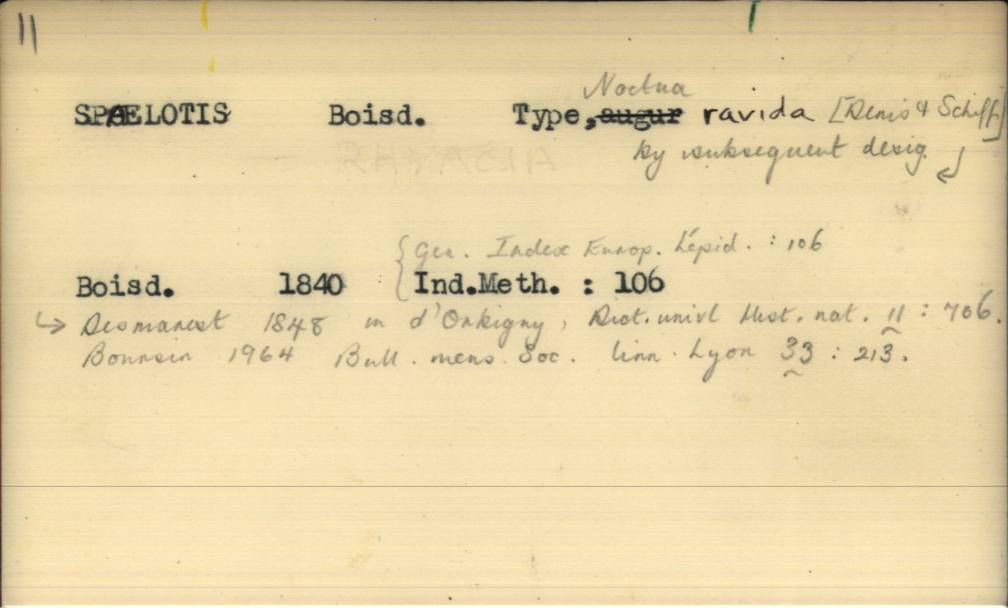 11
Noctua
SPAELOTIS Boisd. Type, augur ravida [Denis & Schiff.]
by subsequent desig.
{Gen. Index Europ. Lépid. : 106
Boisd. 1840 Ind.Meth. : 106
↳ Desmarest 1848 in d'Orbigny, Dict. univl Hist. nat. 11 : 706.
Boursin 1964 Bull. mens. Soc. linn. Lyon 33 : 213.